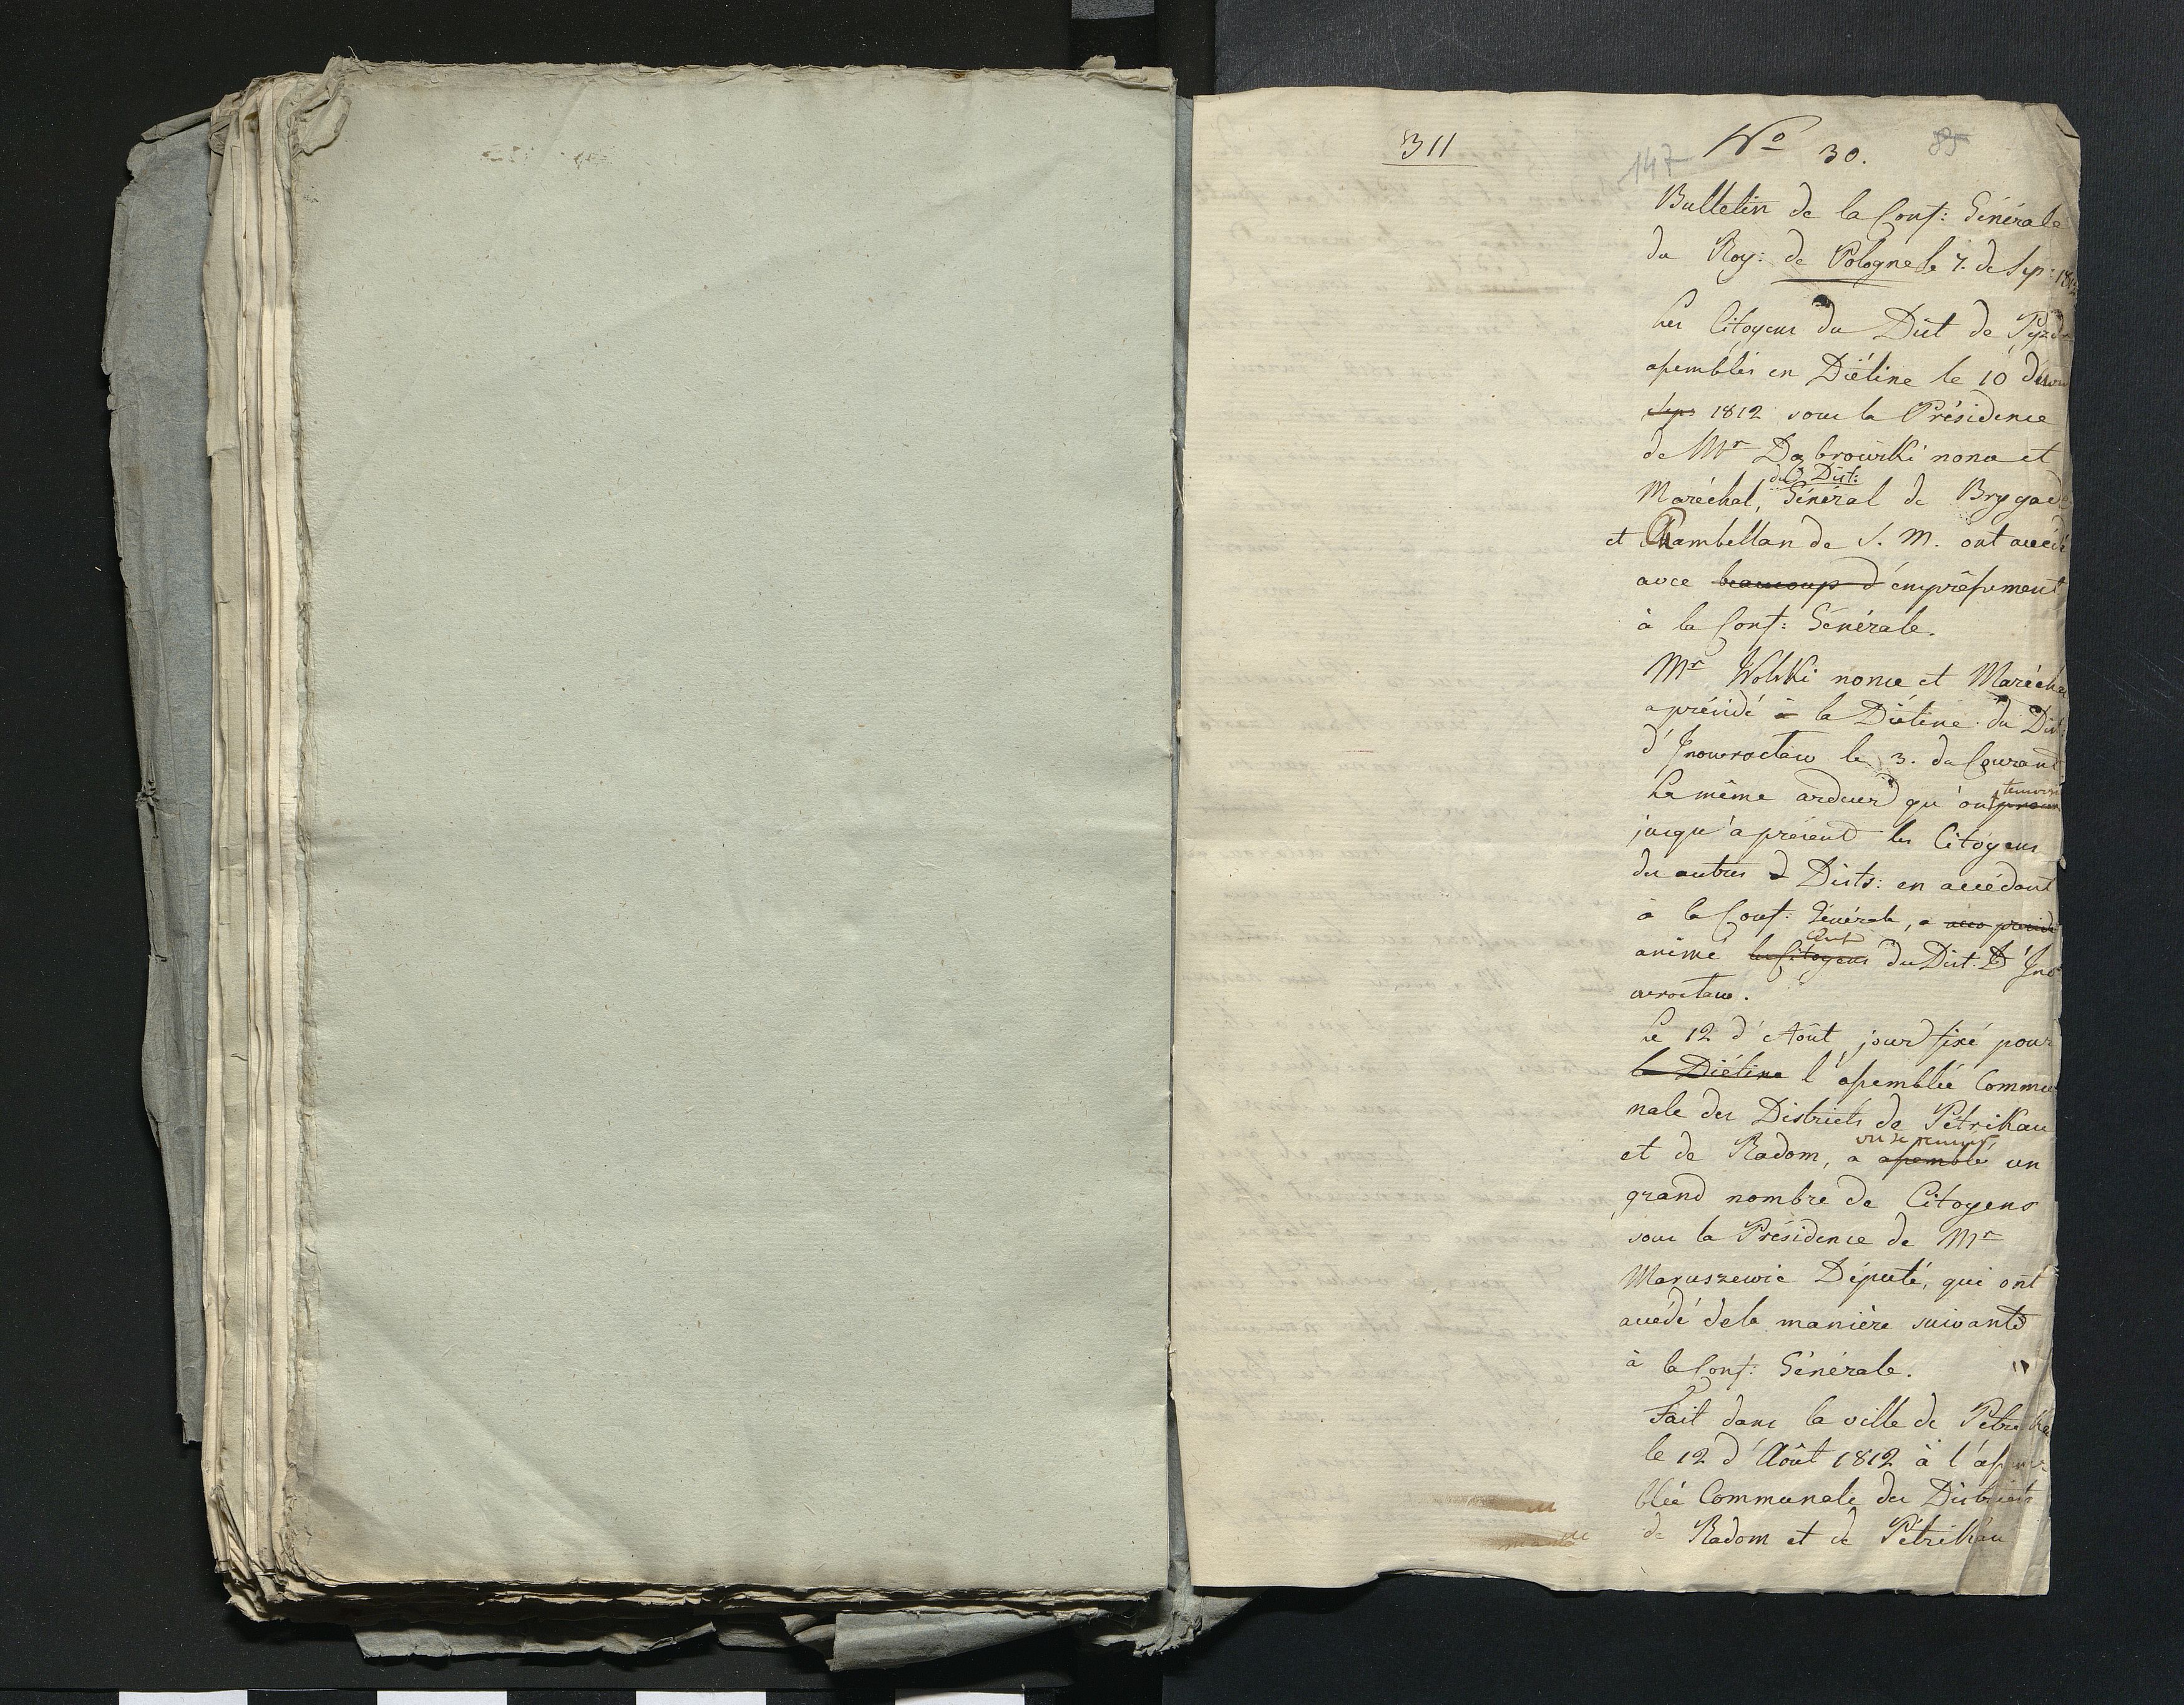 311
147
No 30.
85
Bulletin de la Conf: Générale
du Roy: de Pologne le 7. de Sep: 1812
Les Citoyens du Dist de Pyzdr
assemblés en Diétine le 10 d'aou
Sept 1812 sous la Présidence
de Mr Dąbrowski nonce et
du Dist:
Maréchal, Général de Brygade
et Chambellan de S. M. ont accédé
avec beaucoup d'empressement
à la Conf: Générale.
Mr Wolski nonce et Maréchal
a présidé à la Diétine du Dist:
d'Inowrocław le 3. du Courant
La même ardeur qu'ont
jusqu'a present les Citoyens
des autres d Dists: en accédant
à la Conf: Générale, a
animé les Citoyens du Dist: d'Ino
wrocław.
Le 12 d'Aôut jour fixé pour
la Diétine l'assemblée Commu
nale des Districts de Pétrikau
et de Radom, a assemblé un
grand nombre de Citoyens
sous la Présidence de Mr
Maruszewic Député, qui ont
accédé de la manière suivante
à la Conf: Générale.
"
Fait dans la ville de Petrika
le 12 d'Aôut 1812 à l'assem-
blée Communale des Districts
de Radom et de Pétrikau